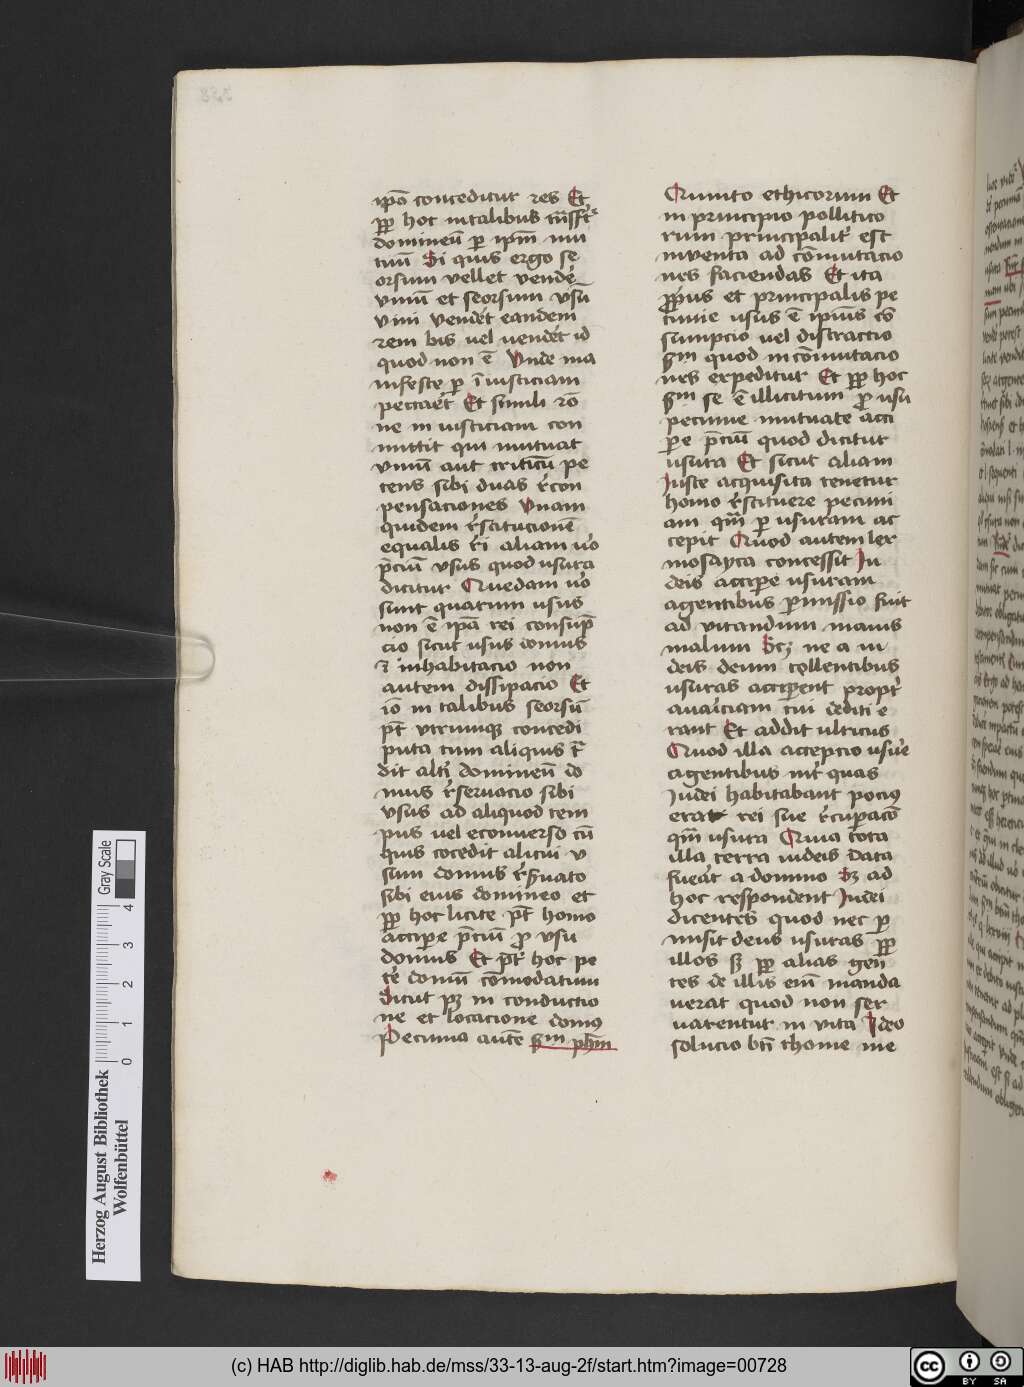 ip̄a conceditur res Et
ꝓp̄ hoc in talibus tn̄sfert᷒
domineū ꝑ ip̄m mu
tuū Si quis ergo se
orsum vellet vende᷒
vinū et seorsum vsū
vini vende᷒t eandem
rem bis vel vende᷒t id
quod non ē Vnde ma
nifeste ꝑ īiusticiam
peccaret Et simili ro
ne in iusticiam con
mittit qui mutuat
vinū aut triticū pe
tens sibi duas r᷒con
pensaciones Vnam
quidem r᷒stitucionē
equalis r᷒i aliam v᷒o
p̄ciū vsus quod vsura
dicitur Quedam v᷒o
sunt quarum usus
non ē ip̄a rei consūp
cio sicut usus domus
ē inhabitacio non
autem dissipacio Et
iō in talibus seorsū
pt̄ vtrumqꝫ concedi
puta cum aliquis t᷒
dit alt᷒i domineū do
mus r᷒seruacio sibi
vsus ad aliquod tem
pus vel econuerso cū
quis cōcedit alicui v
sum domus r᷒s᷒uato
sibi eius domineo et
ꝓp̄ hoc licite pt̄ homo
accipe᷒ p̄ciū ꝓ vsu
domus Et pt̄ hoc pe
te᷒ domū cōmodatum
Sicut pꝫ in conductio
ne et locacione domꝰ
Pecunia autē sm̄ ph̄m
Quinto ethicorum Et
in principio pollitico
rum principalit᷒ est
inventa ad cōmutacio
nes faciendas Et ita
ꝓp̄us et principalis pe
cunie usus ē ipsius cō
sumpcio uel distractio
sm̄ quod in cōmutacio
nes expeditur Et ꝓp̄ hoc
sm̄ se ē illicitum ꝓ usu
pecunie mutuate acci
pe᷒ p̄ciū quod dicitur
usura Et sicut aliam
Iuste acquisita tenetur
homo r᷒stituere pecuni
am qm̄ ꝑ usuram ac
cepit Quod autem lex
mosayca concessit Iu
deis accipe᷒ usuram
agentibus ꝑmissio fuit
ad vitandum maius
malum Scꝫ ne a iu
deis deum collentibus
usuras accipe᷒nt propt᷒
auariciam cui dediti e
rant Et addit ulticus
Quod illa accepcio usure
agentibus int᷒ quas
Iudei habitabant pociꝰ
erat rei sue r᷒cuꝑacō
qm̄ usura Quia tota
illa terra iudeis data
fuerat a domino Sꝫ ad
hoc respondent Iudei
dicentes quod nec ꝑ
misit deus usuras ꝓp̄
illos sꝫ ꝓp̄ alias gen̄
tes de illis eni᷒ manda
uerat quod non ser
uarentur in vita Ideo
solucio bt̄i thome me
Herzog August Bibliothek
Wolfenbüttel
Gray Scale
0 1 2 3 4
(c) HAB http://diglib.hab.de/mss/33-13-aug-2f/start.htm?image=00728
cc BY SA